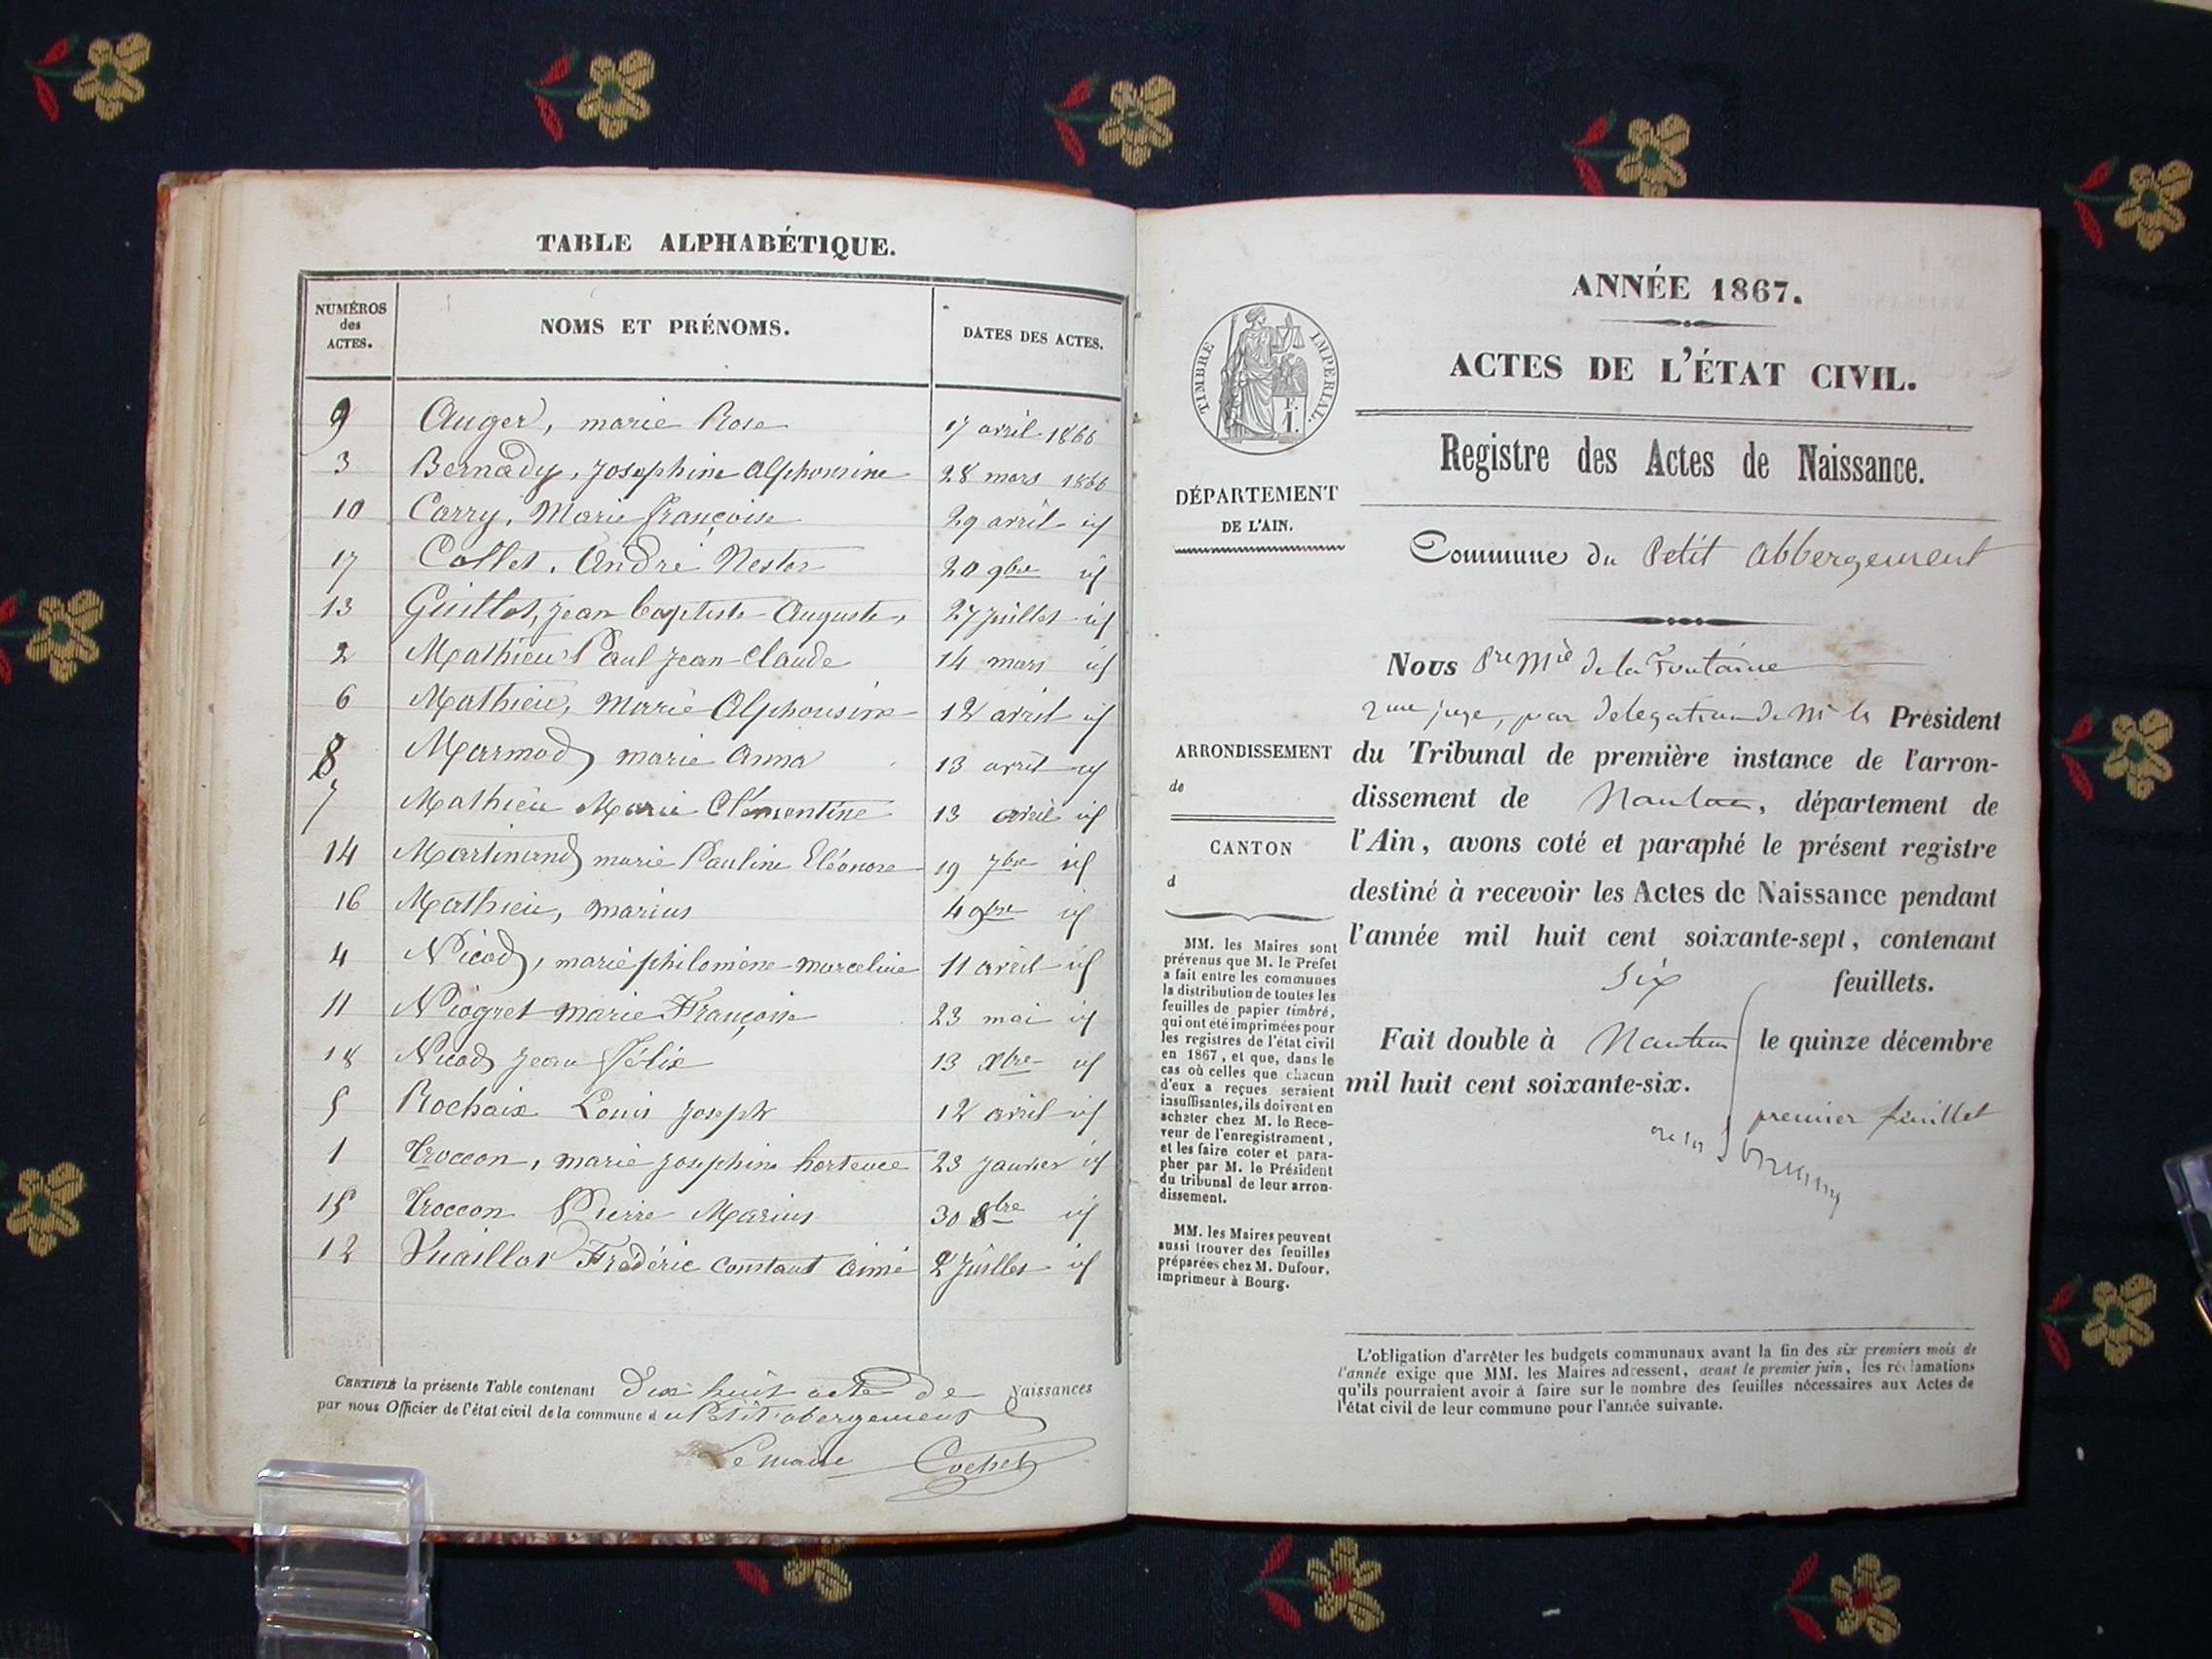 TABLE ALPHABÉTIQUE.
NUMÉROS des ACTES. NOMS ET PRÉNOMS. DATES DES ACTES.
9 Auger, marie Rose 17 avril 1866
3 Bernady, Josephine Alphonsine 28 mars 1866
10 Carry, Marie Françoise 29 avril id
17 Collet, André Nestor 20 9bre id
13 Guillot, Jean baptiste Auguste, 27 juillet id
2 Mathieu Paul Jean Claude 14 mars id
6 Mathieu, Marie Alphonsine 12 avril id
8 Marmod marie Anna 13 avril id
7 Mathieu Marie Clémentine 13 avril id
14 Martinand marie Pauline Eléonore 19 7bre id
16 Mathieu, Marius 4 9bre id
4 Nicod, marie philomène marceline 11 avril id
11 Niogret marie Françoise 23 mai id
18 Nicod Jean Félix 13 Xbre id
5 Rochaix Louis Joseph 12 avril id
1 Troccon, marie Josephine hortence 23 Janvier id
15 Troccon Pierre Marius 30 8bre id
12 Vuaillat Frédéric constant Aimé 2 Juillet id
CERTIFIÉ la présente Table contenant Dix huit acte de Naissances
par nous Officier de l'état civil de la commune du Petit abergement
Le maire Cochet
ANNÉE 1867.
TIMBRE IMPÉRIAL.
F. 1.
ACTES DE L'ÉTAT CIVIL.
Registre des Actes de Naissance.
DÉPARTEMENT
DE L'AIN.
Commune du Petit Abbergement
Nous de la Fontaine
2me juge, par délégation de Mr le Président
du Tribunal de première instance de l'arron-
dissement de Nantua, département de
l'Ain, avons coté et paraphé le présent registre
destiné à recevoir les Actes de Naissance pendant
l'année mil huit cent soixante-sept, contenant
Six feuillets.
Fait double à Nantua le quinze décembre
mil huit cent soixante-six.
premier feuillet
ARRONDISSEMENT
de
CANTON
d
MM. les Maires sont
prévenus que M. le Préfet
a fait entre les communes
la distribution de toutes les
feuilles de papier timbré,
qui ont été imprimées pour
les registres de l'état civil
en 1867, et que, dans le
cas où celles que chacun
d'eux a reçues seraient
insuffisantes, ils doivent en
acheter chez M. le Rece-
veur de l'enregistrement,
et les faire coter et para-
pher par M. le Président
du tribunal de leur arron-
dissement.
MM. les Maires peuvent
aussi trouver des feuilles
préparées chez M. Dufour,
imprimeur à Bourg.
L'obligation d'arrêter les budgets communaux avant la fin des six premiers mois de
l'année exige que MM. les Maires adressent, avant le premier juin, les réclamations
qu'ils pourraient avoir à faire sur le nombre des feuilles nécessaires aux Actes de
l'état civil de leur commune pour l'année suivante.